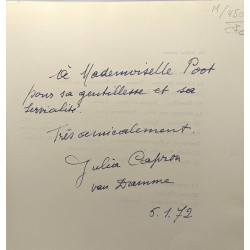 à Mademoiselle Poot
pour sa gentillesse et sa
servialité.
Très amicalement.
Julia Capron
van Damme
5.1.72